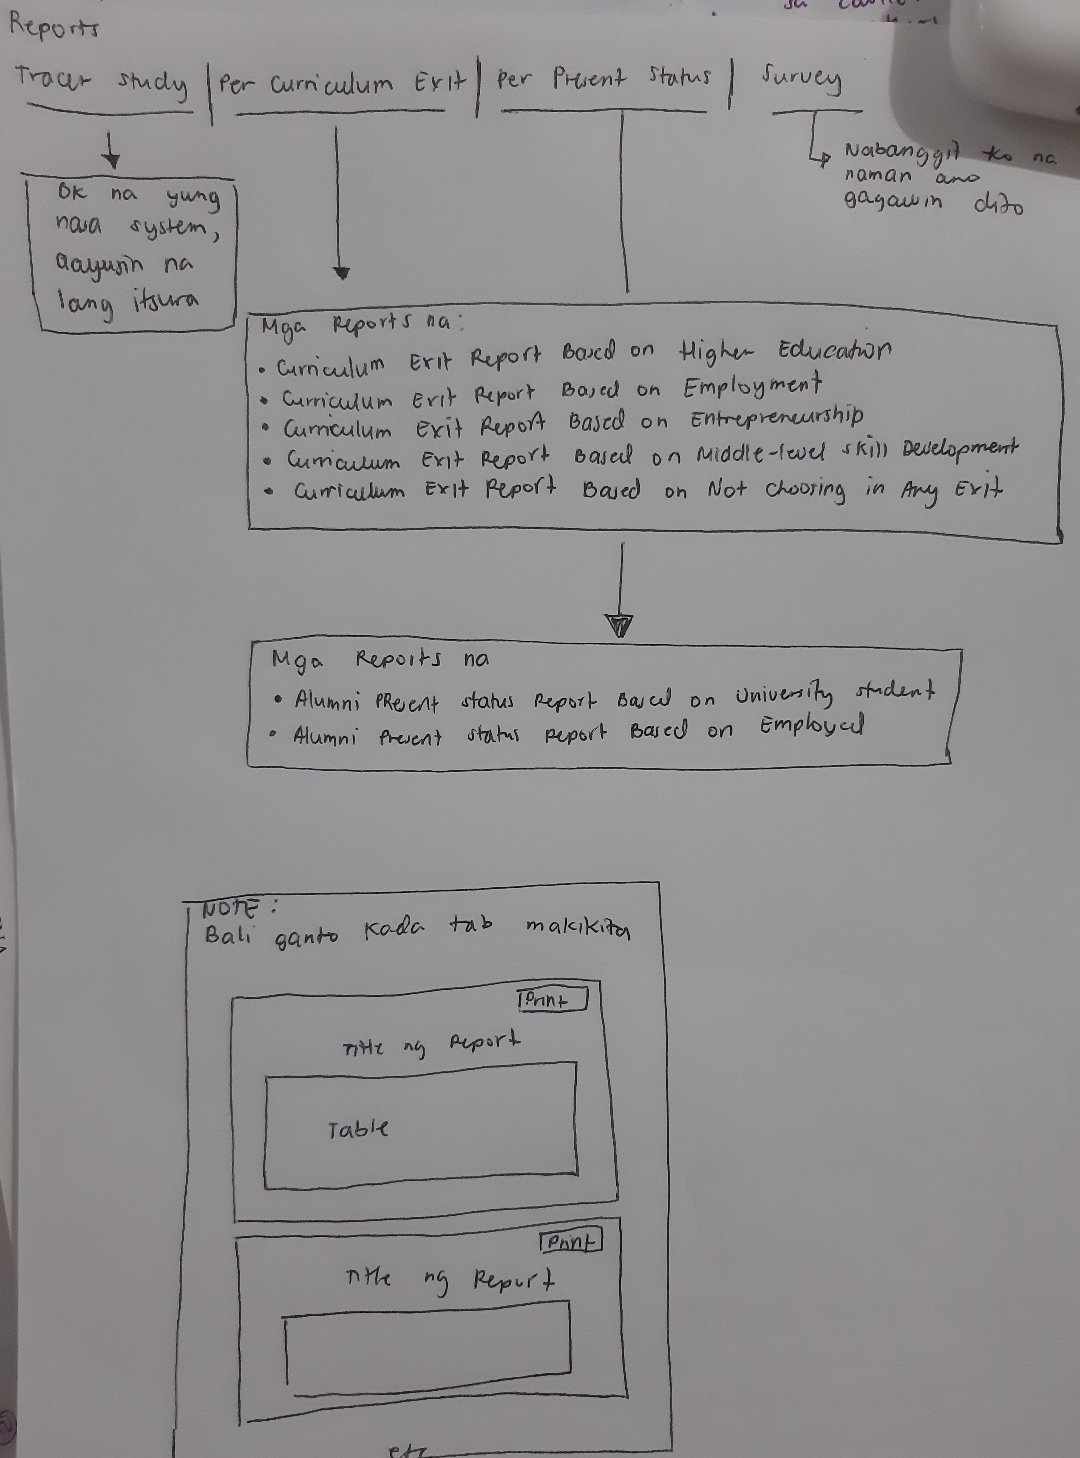 Reports
Tracer study | Per Curriculum Exit | Per Present Status | Survey
Nabanggit ko na
naman ano
gagawin dito
OK na yung
nasa system,
aayusin na
lang itsura
Mga Reports na:
• Curriculum Exit Report Based on Higher Education
• Curriculum Exit Report Based on Employment
• Curriculum Exit Report Based on Entrepreneurship
• Curriculum Exit Report Based on Middle-level skill Development
• Curriculum Exit Report Based on Not Choosing in Any Exit
Mga Reports na
• Alumni Present status Report Based on University student
• Alumni Present status Report Based on Employed
NOTE:
Bali ganto kada tab makikita
Print
Title ng Report
Table
Print
Title ng Report
etc